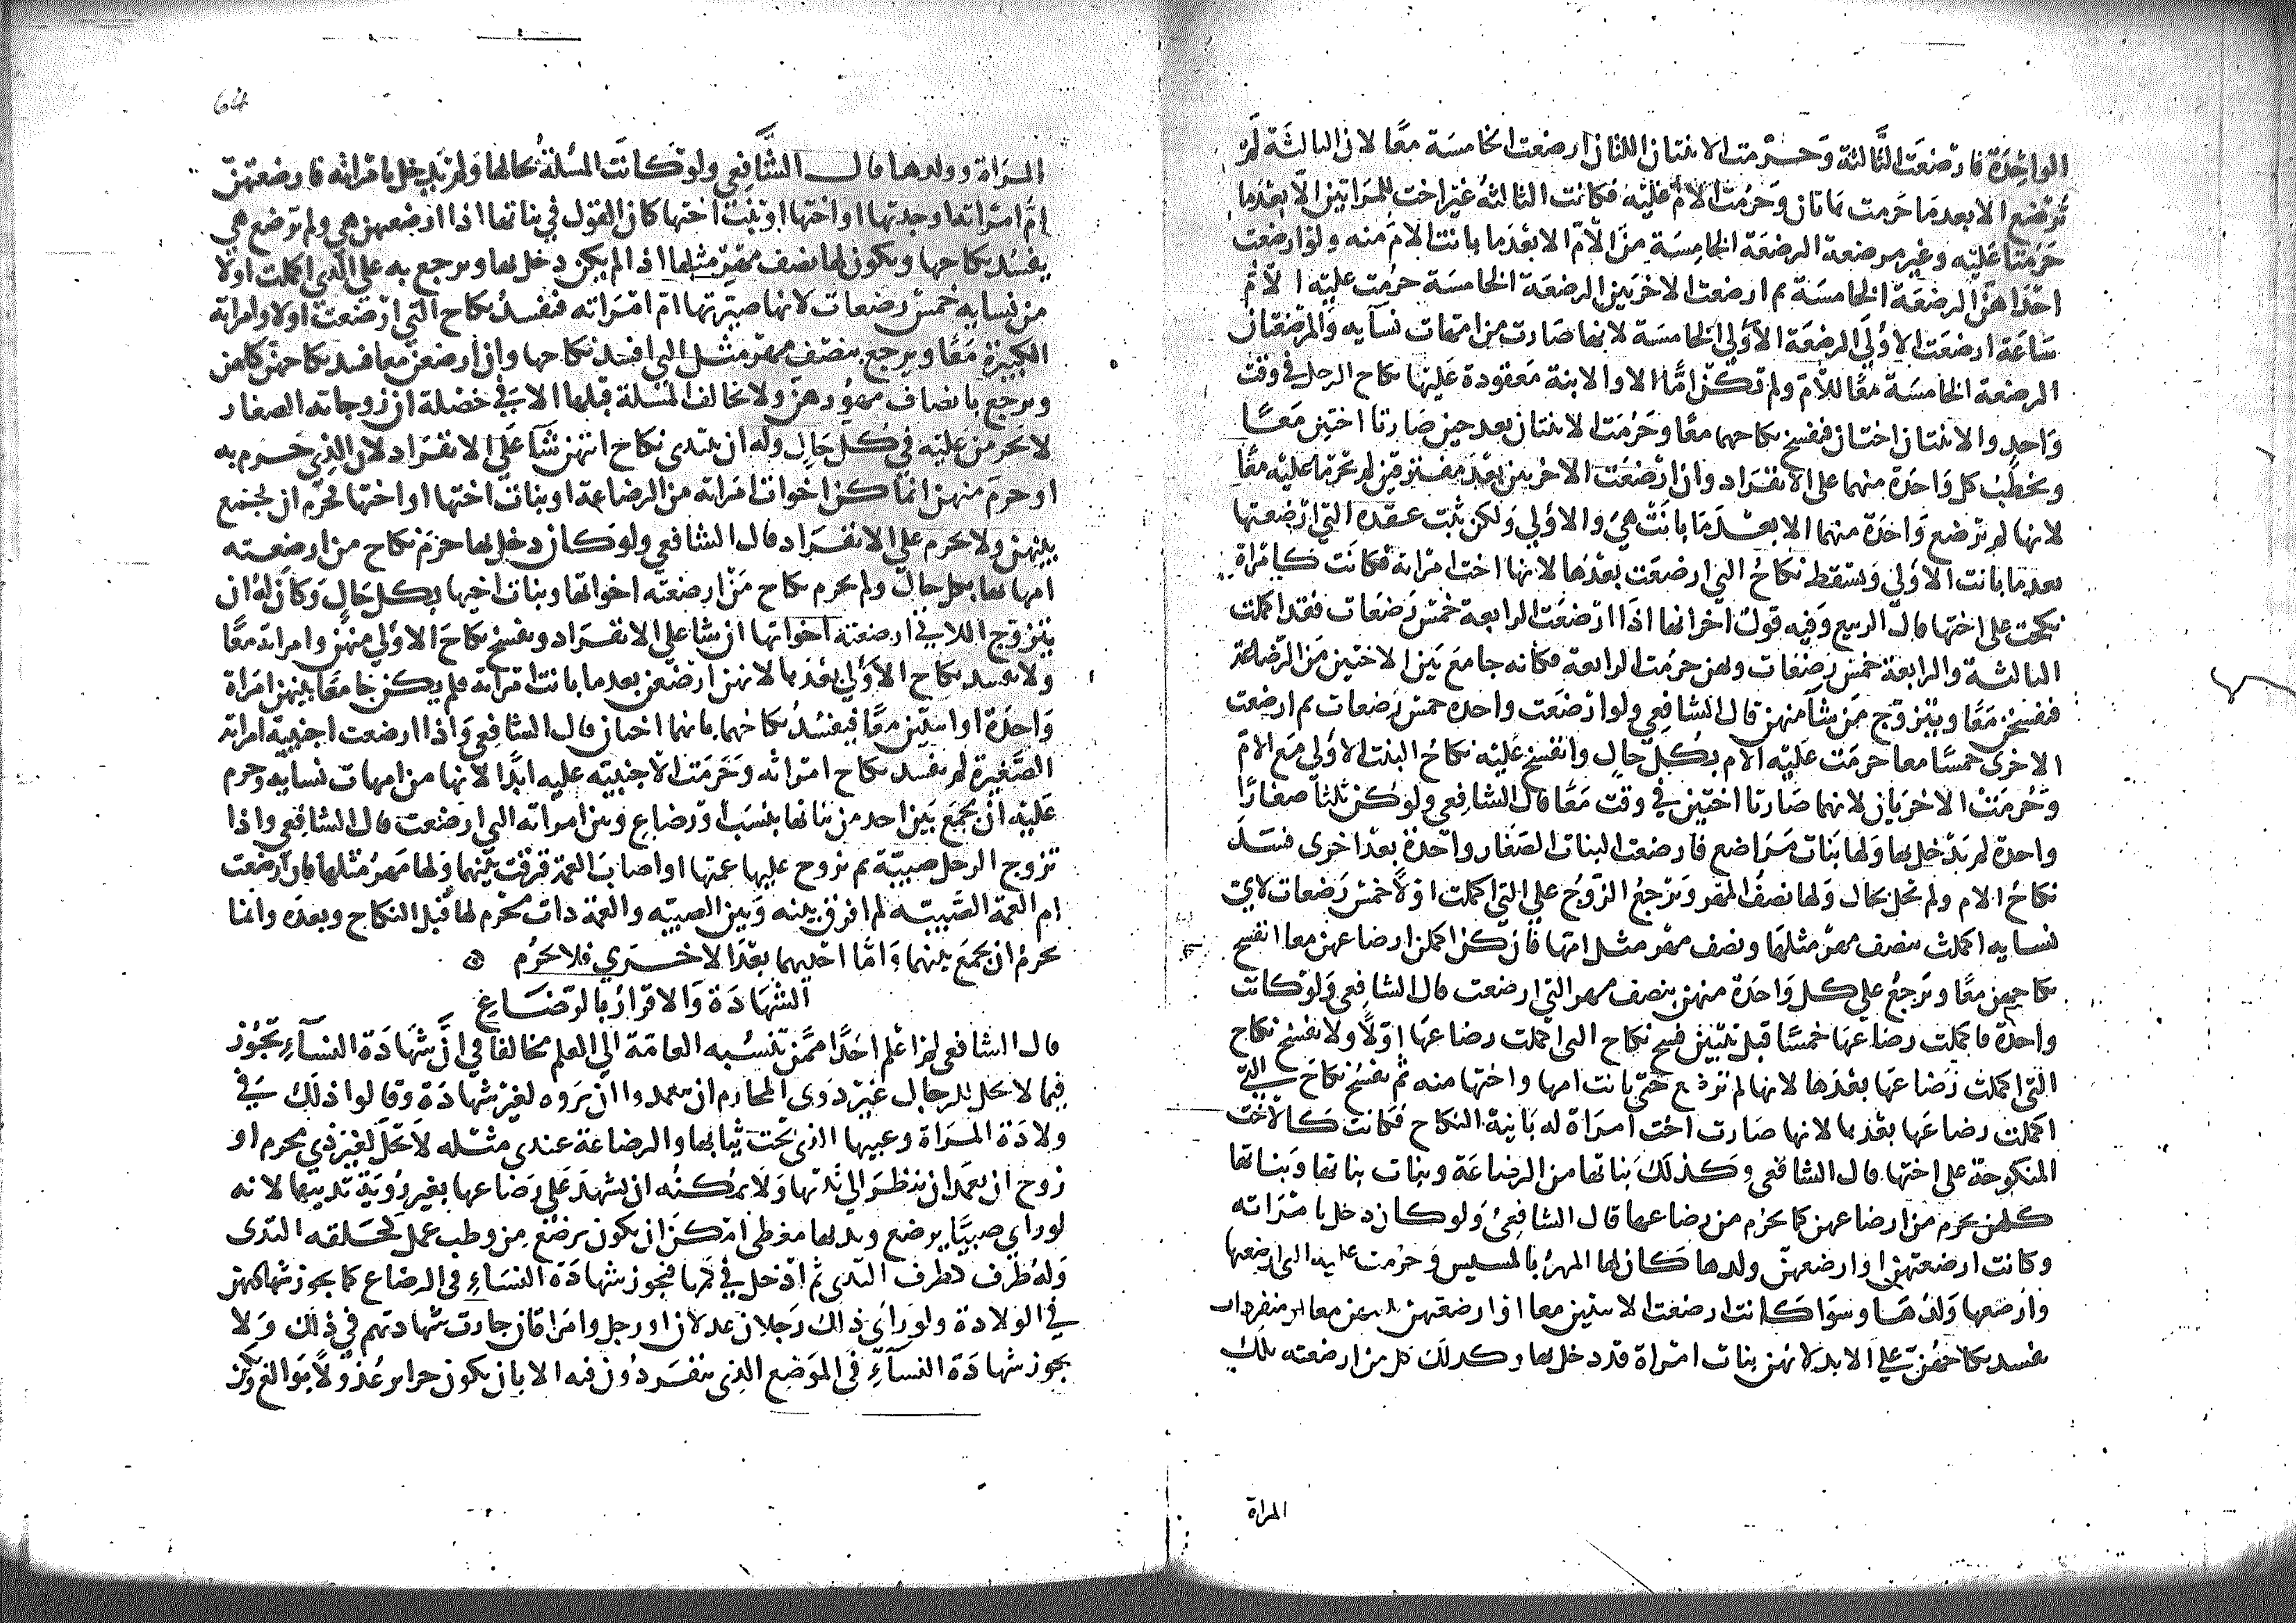 الواحدة فارضعت الثالثة وحرمت الابنتان اللتان ارضعت الخامسة معا لان الثالثة لم
ترضع الا بعدما حرمت هاتان وحرمت الام عليه فكانت الثالثة غير اخت للمراتين الا بعدما
حرمتا عليه وغير مرضعة الرضعة الخامسة من الام الا بعدما بانت الام منه ولو ارضعت
احداهن الرضعة الخامسة ثم ارضعت الاخريين الرضعة الخامسة حرمت عليه الام
ساعة ارضعت الاولى الرضعة الاولى الخامسة لانها صارت من امهات نسايه والمرضعتان
الرضعة الخامسة معا للام ولم تكن اما الا والابنة معقودة عليها نكاح الرجل في وقت
واحد والابنتان اختان فنفسخ نكاحهما معا وحرمت الابنتان بعد حين صارتا اختين معا
ويخطب كل واحدة منهما على الانفراد وان ارضعت الاخريين بعد مفترقين لم تحرما عليه معا
لانها لم ترضع واحدة منهما الا بعدما بانت هي والاولى ولكن ثبت عقده التي ارضعتها
بعدما بانت الاولى ويسقط نكاح التي ارضعت بعدها لانها اخت امراته فكانت كامراة
نكحت على اختها قال الربيع وفيه قول اخر انها اذا ارضعت الرابعة خمس رضعات فقد اكملت
الثالثة والرابعة خمس رضعات وبهن حرمت الرابعة فكانه جامع بين الاختين من الرضاعة
فنفسخن معا ويتزوج من شآ منهن قال الشافعي ولو ارضعت واحده خمس رضعات ثم ارضعت
الاخرى خمسا معا حرمت عليه الام بكل حال وانفسخ عليه نكاح البنت الاولى مع الام
وحرمت الاخريان لانهما صارتا اختين في وقت معا قال الشافعي ولو كن ثلثا صغارا
واحدة لم يدخل بها ولها بنات مراضع فارضعت البنات الصغار واحدة بعد اخرى فسد
نكاح الام ولم تحل بحال ولها نصف المهر ويرجع الزوج على التي اكملت اولا خمس رضعات لاي
نسايه اكملت بنصف مهر مثلها ونصف مهر مثل امها فان كن اكملن ارضاعهن معا انفسخ
نكاحهن معا ويرجع على كل واحدة منهن بنصف مهر التي ارضعت قال الشافعي ولو كانت
واحدة فاكملت رضاعها خمسا قبل تبين فسخ نكاح التي اكملت رضاعها اولا ولا يفسخ نكاح
التي اكملت رضاعها بعدها لانها لم ترضع حتى بانت امها واختها منه ثم يفسخ نكاح التي
اكملت رضاعها بعدها لانها صارت اخت امراة له ثابتة النكاح فكانت كالاخت
المنكوحة على اختها قال الشافعي وكذلك بناتها من الرضاعة وبنات بناتها وبناتها
كلهن يحرم من ارضاعهن كما يحرم من رضاعها قال الشافعي ولو كان دخل بامراته
وكانت ارضعتهن او ارضعهن ولدها كان لها المهر بالمسيس وحرمت عليه التي ارضعها
وارضعها ولدها وسوا كانت ارضعت الاثنين معا او ارضعتهن معا او منفردات
نفسد نكاحهن على الابد لانهن بنات امراة قد دخل بها وكذلك كل من ارضعته تلك
المراة
64
المراة وولدها قال الشافعي ولو كانت المسلة بحالها ولم يدخل بامراته فارضعتهن
ام امراته او جدتها او اختها او بنت اختها كان القول في بناتها اذا ارضعهن هي ولم ترضع هي
يفسد نكاحها ويكون لها نصف مهر مثلها اذا لم يكن دخل بها ويرجع به على التي اكملت اولا
من نسايه خمس رضعات لانها صيرتها ام امراته فنفسد نكاح التي ارضعت اولا وامراته
الكبيرة معا ويرجع بنصف مهر مثل التي افسد نكاحها وان ارضعن معا فسد نكاحهن كلهن
ويرجع بانصاف مهورهن ولا تخالف المسلة قبلها الا في خصلة ان زوجاته الصغار
لا يحرمن عليه في كل حال وله ان يبتدى نكاح ايتهن شآ على الانفراد لان الذي حرم به
او حرم منهن انما كن اخوات امراته من الرضاعة او بنات اختها او اختها فحرم ان يجمع
بينهن ولا يحرم على الانفراد قال الشافعي ولو كان دخل بها حرم نكاح من ارضعته
امهاتها بكل حال ولم يحرم نكاح من ارضعته اخواتها وبنات اخيها بكل حال وكان له ان
يتزوج اللاتي ارضعته اخواتها ان شا على الانفراد ويفسخ نكاح الاولى منهن وامراته معا
ولا يفسد نكاح الاولى بعدها لانهن ارضعن بعدما بانت امراته فلم يكن جامعا بينهن امراة
واحدة او اثنتين معا فيفسد نكاحهما بانهما اختان قال الشافعي واذا ارضعت اجنبية امراته
الصغيرة لم يفسد نكاح امراته وحرمت الاجنبيه عليه ابدا لانها من امهات نسايه وحرم
عليه ان يجمع بين احد من بناتها بنسب او رضاع وبين امراته التي ارضعت قال الشافعي واذا
تزوج الرجل صبية ثم تزوج عليها عمتها او اصاب العمة فرقت بينهما ولها مهر مثلها فان ارضعت
ام العمة الصبيه لم افرق بينه وبين الصبيه والعمة ذات محرم لها قبل النكاح وبعده وانما
يحرم ان يجمع بينهما واما احديهما بعد الاخرى فلا يحرم
الشهادة والاقرار بالرضاع
قال الشافعي لم اعلم احدا ممن تنسبه العامة الى العلم مخالفا في ان شهادة النسآء تجوز
فيما لا يحل للرجال غير ذوى المحارم ان يتعمدوا ان يروه لغير شهادة وقالوا ذلك في
ولادة المراة وعيبها الذى تحت ثيابها والرضاعة عندى مثله لا تحل لغير ذي محرم او
زوج ان يعمد ان ينظر الى ثديها ولا يمكنه ان يشهد على رضاعها بغير روية ثدييها لانه
لو راى صبيا يرضع وثديها مغطى امكن ان يكون يرضع من وطب عمل كخلقه الثدى
وله طرف كطرف الثدى ثم ادخل في كمها فتجوز شهادة النساء فى الرضاع كما يجوز شهادتهن
في الولادة ولو راى ذلك رجلان عدلان او رجل وامراتان جازت شهادتهم في ذلك ولا
يجوز شهادة النسآء في الموضع الذى ينفردون فيه الا بان يكون حراير عدولا بوالغ ويكن